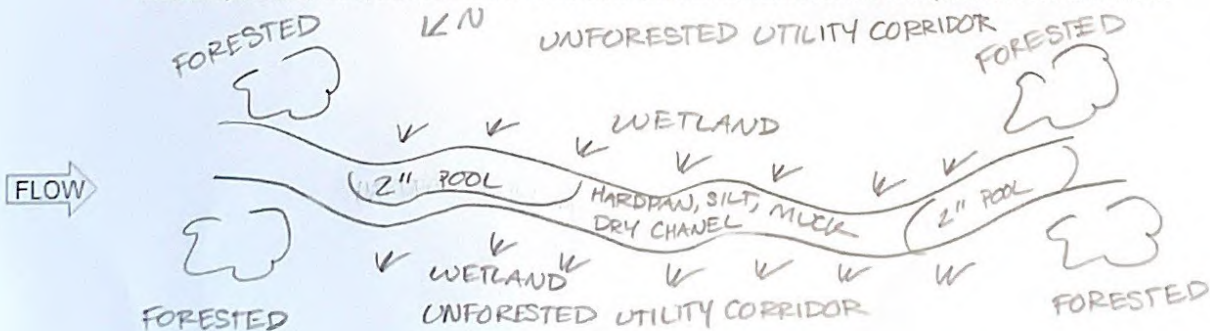 N
UNFORESTED UTILITY CORRIDOR
FORESTED
FORESTED
WETLAND
FLOW
2" POOL
HARDPAN, SILT, MUCK
DRY CHANEL
2" POOL
WETLAND
FORESTED
UNFORESTED UTILITY CORRIDOR
FORESTED